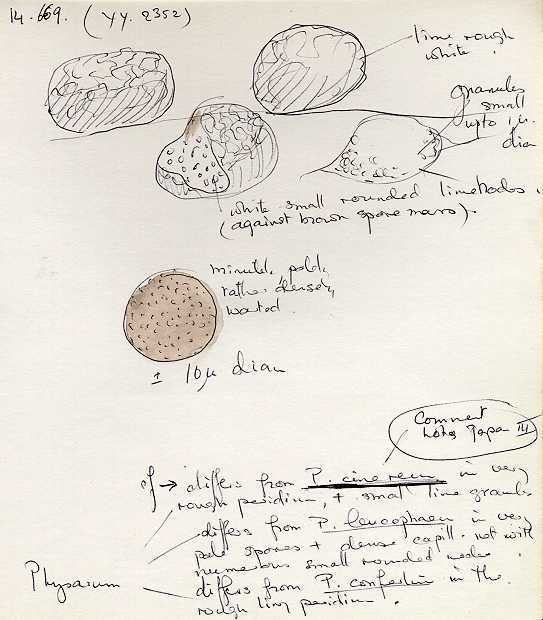 14.669. (YY. 2352)
lime rough
white.
granules
small
upto 1 µ.
dia
white small rounded limenodes.
(against brown spore mass).
minutely, pale,
rather densely
warted.
± 10µ diam
Comment
notes Japan III
cf → differs from P. cinereum in very
rough peridium, + small lime granules
differs from P. leucophaeu in very
pale spores + dense capill. net with
numerous small rounded nodes.
Physarum
differs from P. confertum in the
rough limy peridium.